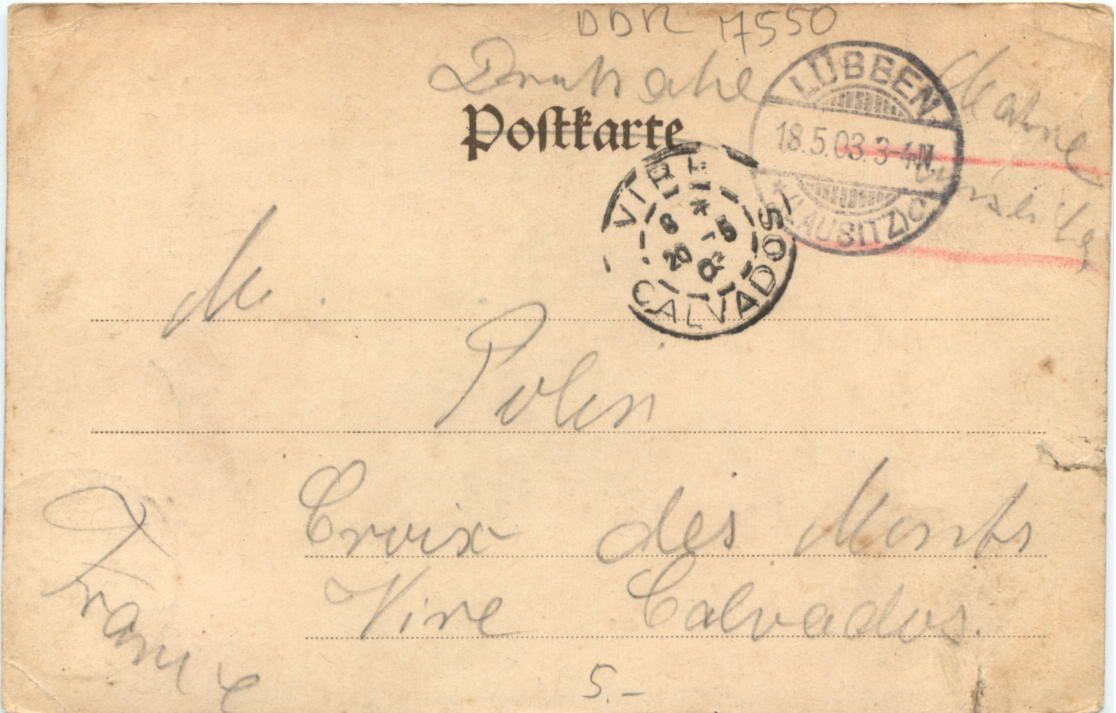 DDR 17550
Drucksache
Postkarte
LÜBBEN
18.5.03.3-4N.
* (LAUSITZ) C
Marke
VIRE
CALVADOS
M.
Polin
Croix des Monts
Vire Calvados.
France
5.-